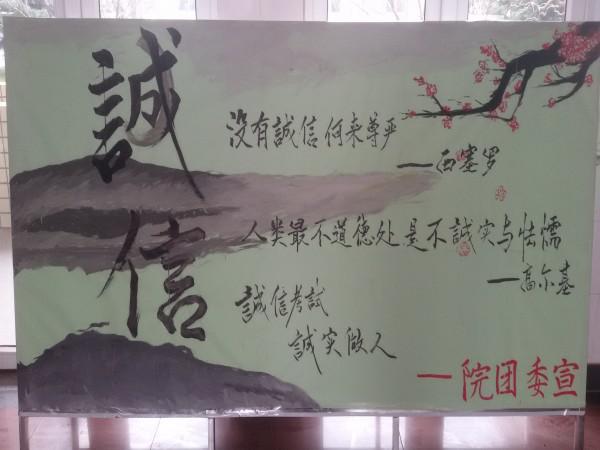 誠信
没有誠信何来尊严
——西塞罗
人类最不道德处是不誠实与怯懦
——高尔基
誠信考試
誠实做人
——院团委宣